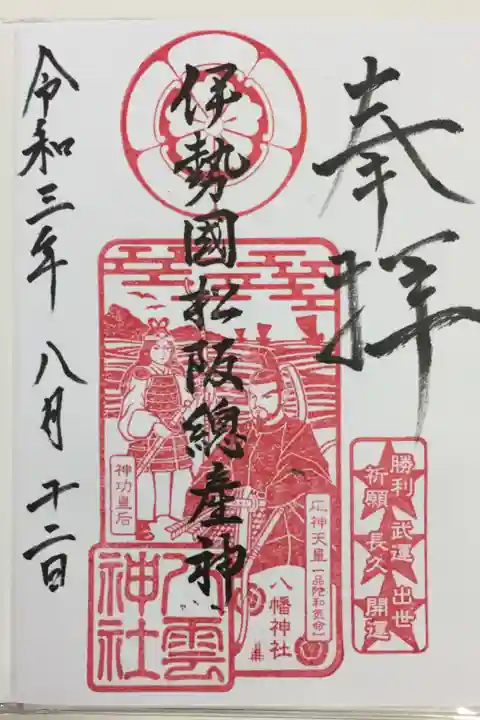 奉拝
伊勢國松阪總産神
令和三年八月十二日
神功皇后
応神天皇
八幡神社
八雲
神社
勝利
祈願
武運
長久
出世
開運